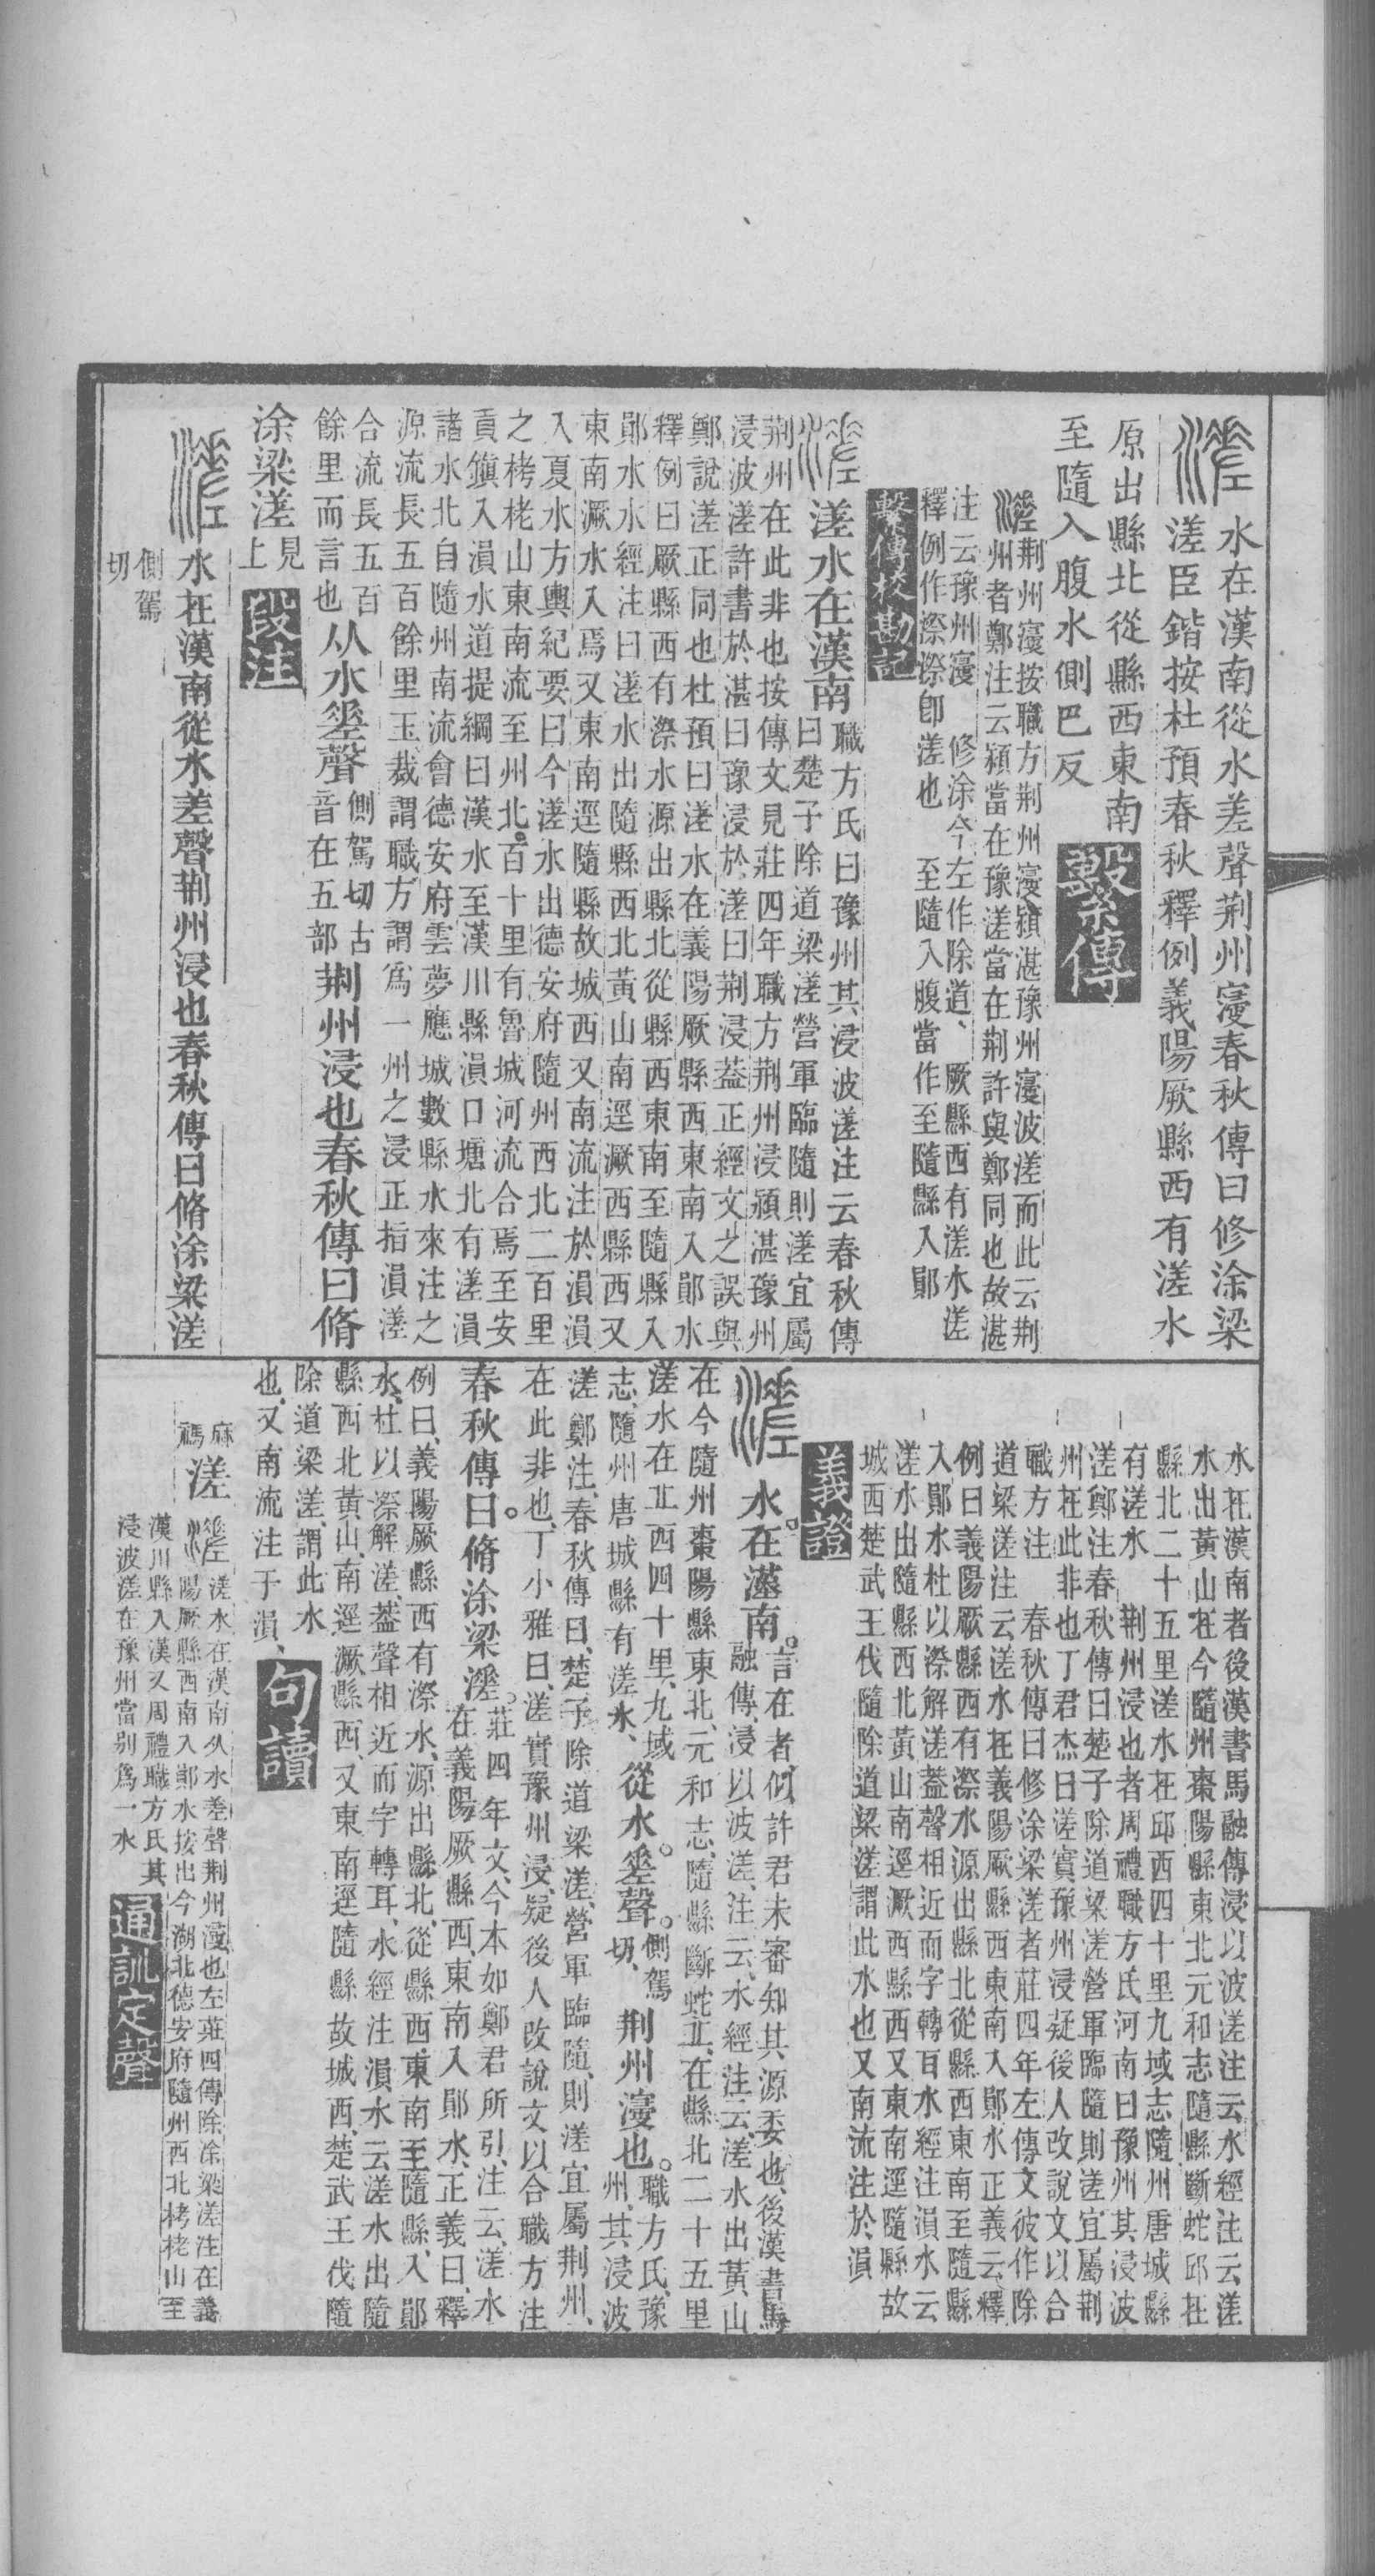 水在漢南從水差聲荆州寖春秋傳曰修涂梁
溠臣鍇按杜預春秋釋例義陽厥縣西有溠水
原出縣北從縣西東南
至隨入腹水側巴反
繫傳
溠荆州寖按職方荆州寖潁湛豫州寖波溠而此云荆
州者鄭注云潁當在豫溠當在荆許與鄭同也故湛
注云豫州寖　修涂今左作除道、厥縣西有溠水溠
釋例作㵽㵽卽溠也　至隨入腹當作至隨縣入鄖
繫傳校勘記
溠水在漢南
職方氏曰豫州其浸波溠注云春秋傳
曰楚子除道梁溠營軍臨隨則溠宜屬
荆州在此非也按傳文見莊四年職方荆州浸潁湛豫州
浸波溠許書於湛曰豫浸於溠曰荆浸葢正經文之誤與
鄭說溠正同也杜預曰溠水在義陽厥縣西東南入鄖水
釋例曰厥縣西有㵽水源出縣北從縣西東南至隨縣入
鄖水水經注曰溠水出隨縣西北黃山南逕㵐西縣西又
東南㵐水入焉又東南逕隨縣故城西又南流注於溳溳
入夏水方輿紀要曰今溠水出德安府隨州西北二百里
之栲栳山東南流至州北百十里有魯城河流合焉至安
貢鎭入溳水道提綱曰漢水至漢川縣溳口塘北有溠溳
諸水北自隨州南流會德安府雲夢應城數縣水來注之
源流長五百餘里玉裁謂職方謂爲一州之浸正指溳溠
合流長五百
餘里而言也
从水𢀩聲
側駕切古
音在五部
荆州浸也春秋傳曰脩
涂梁溠
見
上
段注
水在漢南從水差聲荆州浸也春秋傳曰脩涂梁溠
側駕
切
水在漢南者後漢書馬融傳浸以波溠注云水經注云溠
水出黃山在今隨州棗陽縣東北元和志隨縣斷蛇邱在
縣北二十五里溠水在邱西四十里九域志隨州唐城縣
有溠水　荆州浸也者周禮職方氏河南曰豫州其浸波
溠鄭注春秋傳曰楚子除道梁溠營軍臨隨則溠宜屬荆
州在此非也丁君杰曰溠實豫州浸疑後人改說文以合
職方注　春秋傳曰修涂梁溠者莊四年左傳文彼作除
道梁溠注云溠水在義陽厥縣西東南入鄖水正義云釋
例曰義陽厥縣西有㵽水源出縣北從縣西東南至隨縣
入鄖水杜以㵽解溠葢聲相近而字轉百水經注溳水云
溠水出隨縣西北黃山南逕㵐西縣西又東南逕隨縣故
城西楚武王伐隨除道梁溠謂此水也又南流注於溳
義證
水在漢南。
言在者、似許君未審知其源委也、後漢書馬
融傳、浸以波溠、注云、水經注云、溠水出黃山
在今隨州棗陽縣東北、元和志、隨縣斷蛇丘、在縣北二十五里
溠水在丘西四十里、九域
志、隨州唐城縣有溠水、
從水。𢀩聲。
側駕
切、
荆州寖也。
職方氏、豫
州、其浸波
溠鄭注、春秋傳曰、楚子除道梁溠、營軍臨隨、則溠宜屬荆州、
在此非也、丁小雅曰、溠實豫州浸、疑後人改說文以合職方注
春秋傳曰。脩涂梁溠。
莊四年文、今本如鄭君所引、注云、溠水
在義陽厥縣西、東南入鄖水、正義曰、釋
例曰、義陽厥縣西有㵽水、源出縣北、從縣西、東南至隨縣、入鄖
水、杜以㵽解溠、葢聲相近而字轉耳、水經注溳水云溠水出隨
縣西北黃山、南逕㵐縣西、又東南逕隨縣故城西、楚武王伐隨
除道梁溠、謂此水
也、又南流注于溳、
句讀
麻
禡
溠
溠水在漢南从水差聲荆州寖也左莊四傳除涂梁溠注在義
陽厥縣西南入鄖水按出今湖北德安府隨州西北栲栳山至
漢川縣入漢又周禮職方氏其
浸波溠在豫州當別爲一水
通訓定聲